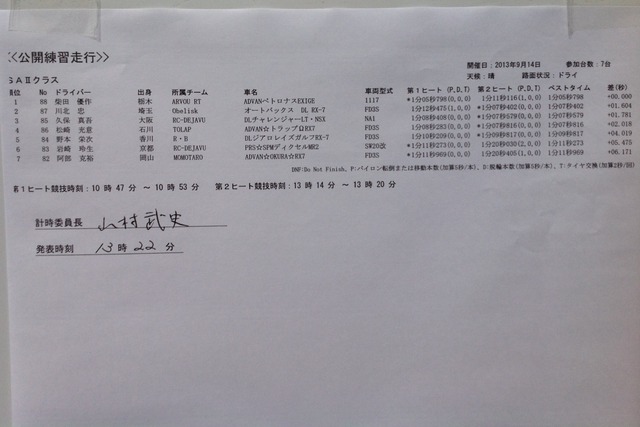 <<公開練習走行>>
開催日：2013年9月14日 参加台数：7台
SAⅡクラス 天候：晴 路面状況：ドライ
順位 No ドライバー 出身 所属チーム 車名 車両型式 第1ヒート(P,D,T) 第2ヒート(P,D,T) ベストタイム 差(秒)
1 88 柴田 優作 栃木 ARVOU RT ADVANペトロナスEXIGE 1117 *1分05秒798(0,0,0) 1分11秒116(1,0,0) 1分05秒798 +00.000
2 87 川北 忠 埼玉 Obelisk オートバックス DL RX-7 FD3S 1分12秒475(1,0,0) *1分07秒402(0,0,0) 1分07秒402 +01.604
3 85 久保 真吾 大阪 RC-DEJAVU DLチャレンジャーLT・NSX NA1 1分08秒408(0,0,0) *1分07秒579(0,0,0) 1分07秒579 +01.781
4 86 松崎 充意 石川 TOLAP ADVAN☆トラップ☆RX7 FD3S 1分08秒283(0,0,0) *1分07秒816(0,0,0) 1分07秒816 +02.018
5 84 野本 栄次 香川 R・B DLジアロレイズガルフRX-7 FD3S 1分10秒209(0,0,0) *1分09秒817(0,0,0) 1分09秒817 +04.019
6 83 岩崎 玲生 京都 RC-DEJAVU PRS☆SPMディクセルMR2 SW20改 *1分11秒273(0,0,0) 1分20秒030(2,0,0) 1分11秒273 +05.475
7 82 阿部 克裕 岡山 MOMOTARO ADVAN☆OKURA☆RX7 FD3S *1分11秒969(0,0,0) 1分20秒405(1,0,0) 1分11秒969 +06.171
DNF:Do Not Finish, P:パイロン転倒または移動本数(加算5秒/本)、D:脱輪本数(加算5秒/本)、T:タイヤ交換(加算2秒/回)
第1ヒート競技時刻：10時 47分 ～10時 53分 第2ヒート競技時刻：13時 14分 ～ 13時 20分
計時委員長 山村 武史
発表時刻 13 時 22 分